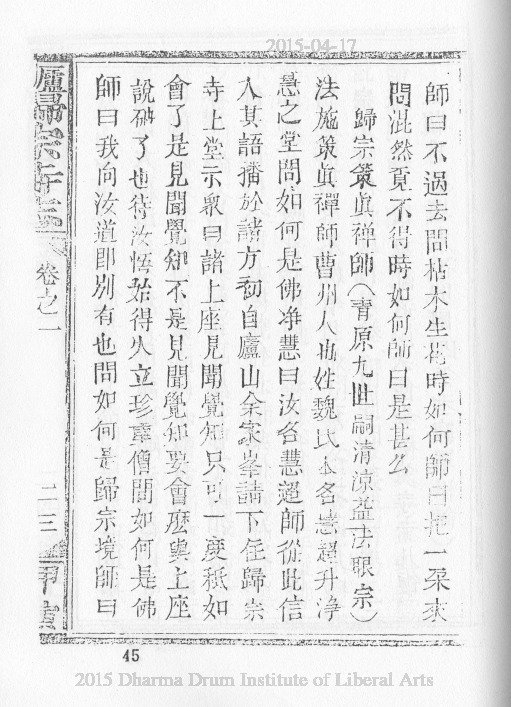 2015-04-17
師曰不過去問枯木生花時如何師曰把一朶來
問混然覔不得時如何師曰是甚么
歸宗策眞禅師(青原九世嗣清凉益法眼宗)
法施策眞禪師曹州人也姓魏氏本名慧超升净
慧之堂問如何是佛净慧曰汝名慧超師從此信
入其語播於諸方初自廬山余家峯請下住歸宗
寺上堂示衆曰諸上座見聞覺知只可一度秖如
會了是見聞覺知不是見聞覺知要會麽與上座
說破了也待汝悟始得久立珍重僧問如何是佛
師曰我向汝道即別有也問如何是歸宗境師曰
廬歸宗寺志 卷之一 二三
45
2015 Dharma Drum Institute of Liberal Arts